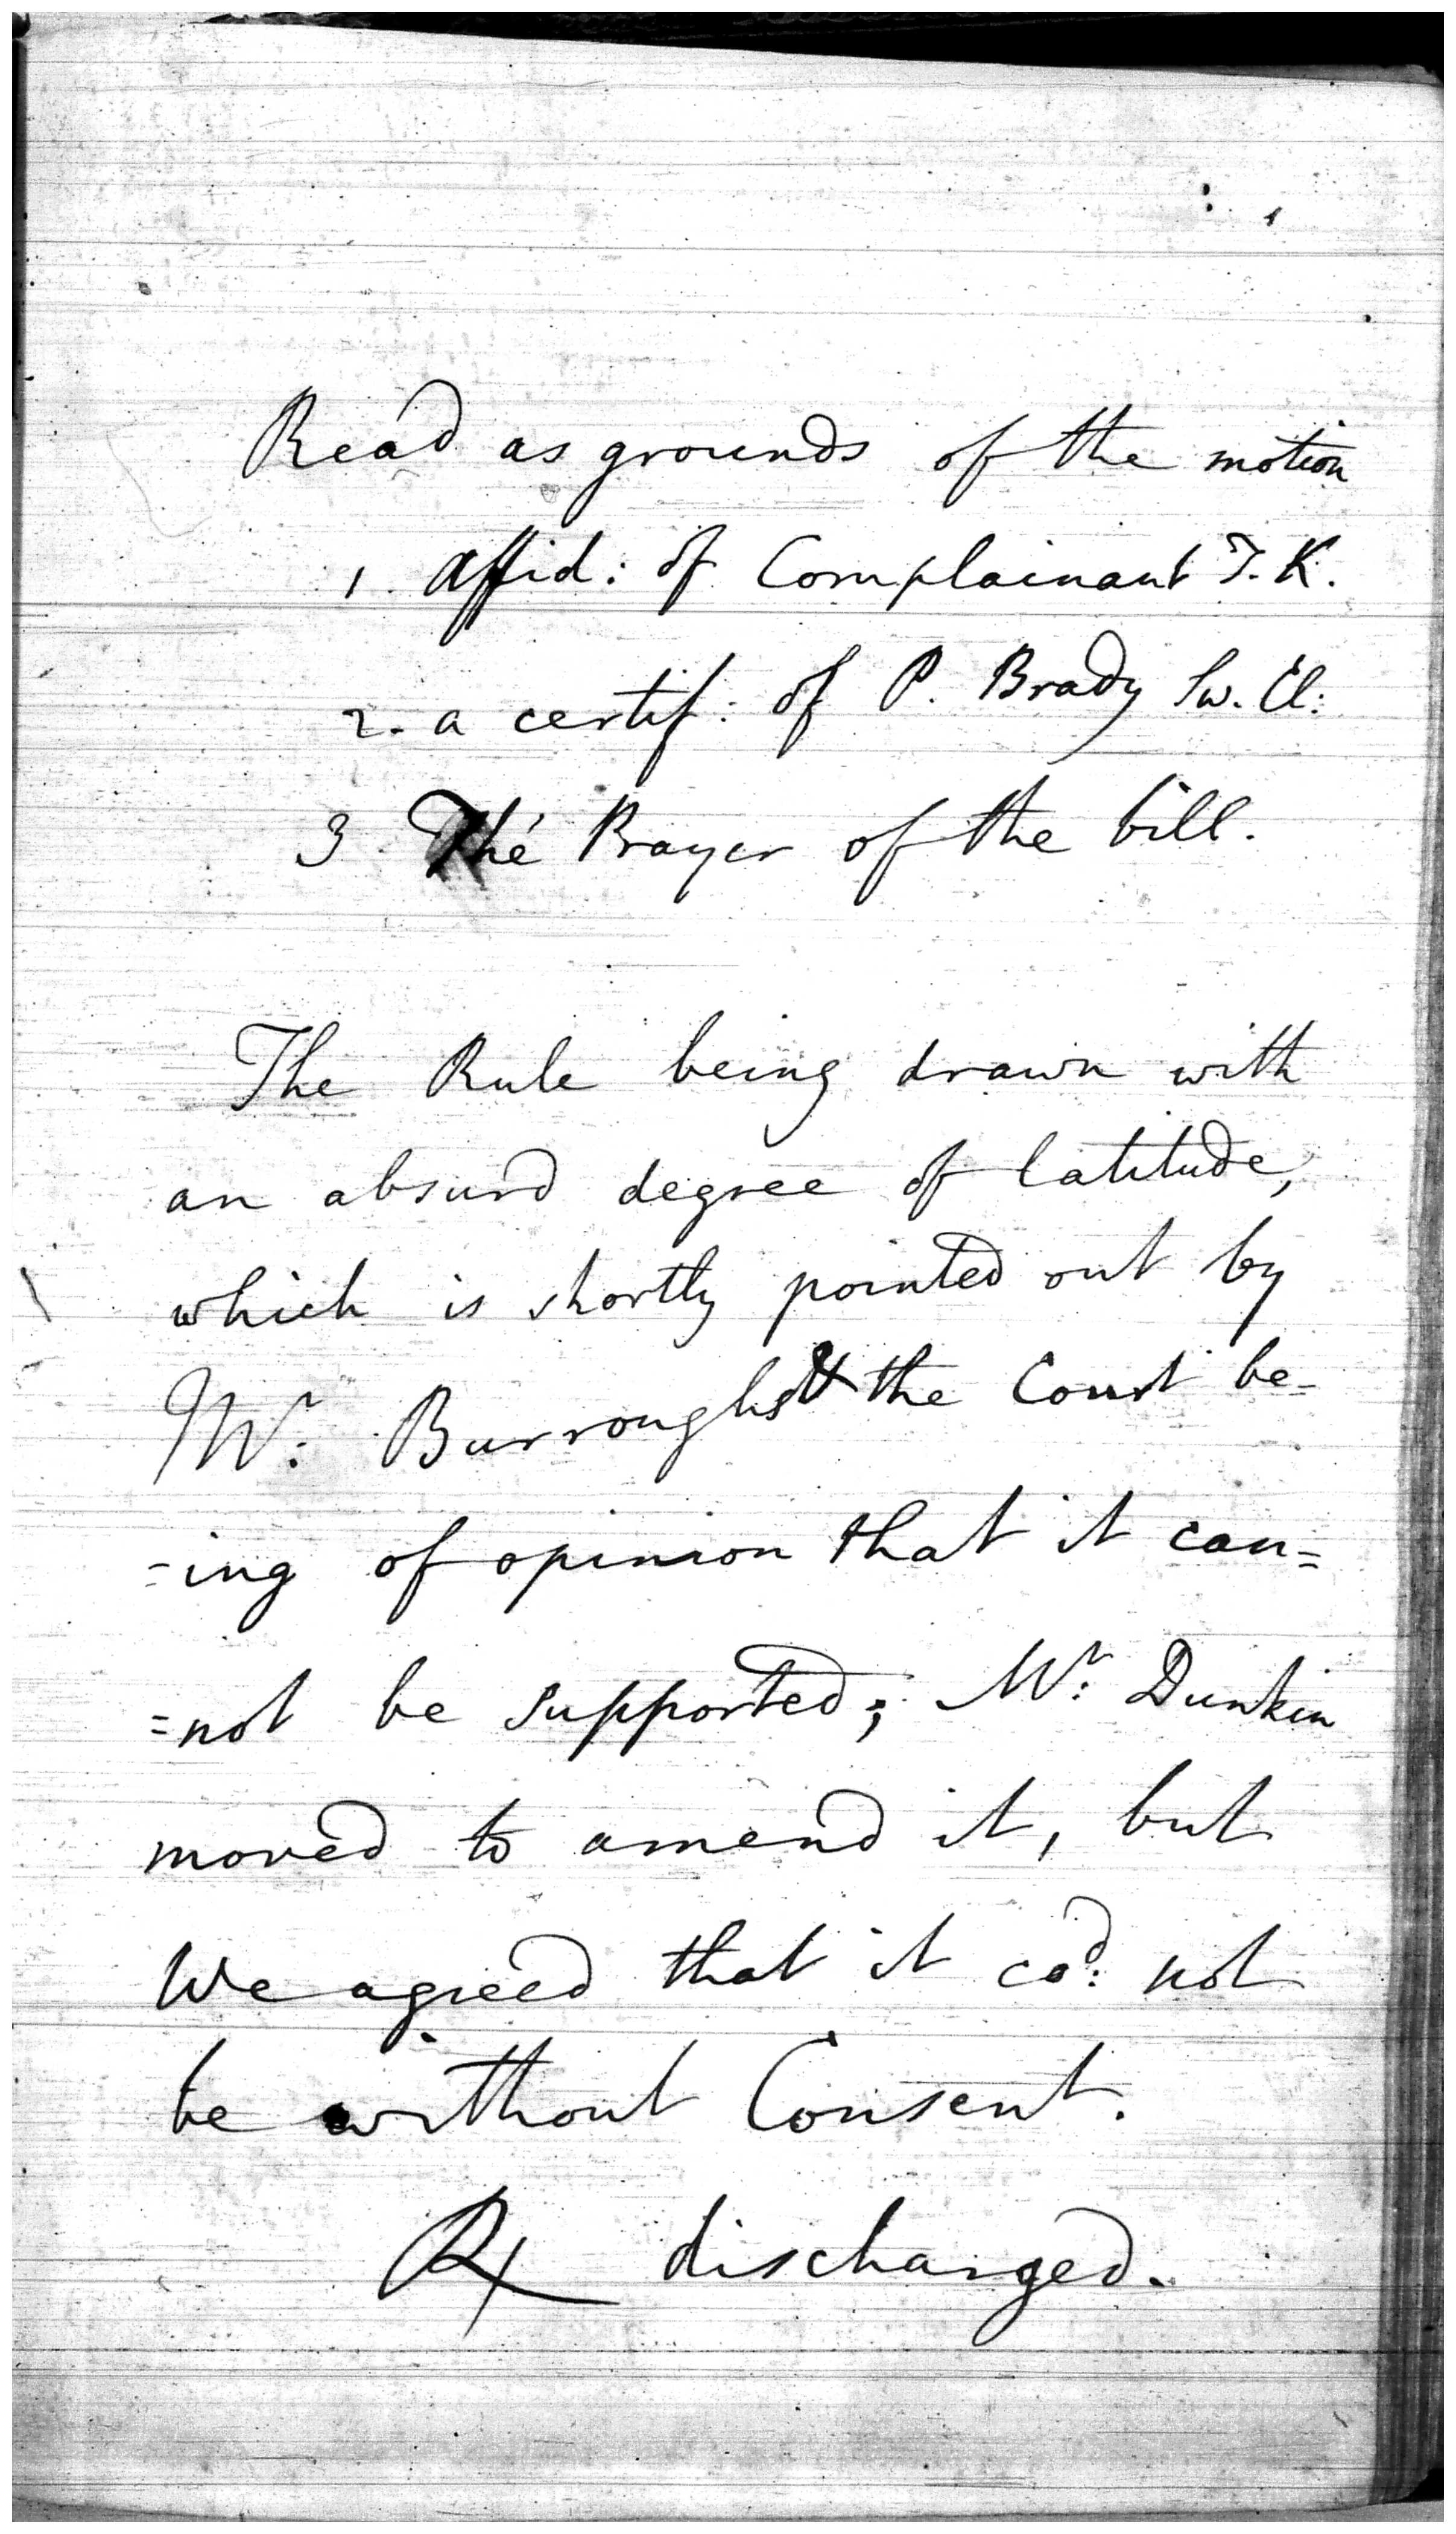 Read as grounds of the motion
1. Affid: of Complainant T. K.
2. a certif: of P. Brady Sw. Cl:
3. The Prayer of the bill.
The Rule being drawn with
an absurd degree of latitude,
which is shortly pointed out by
Mr: Burroughs & the Court be-
=ing of opinion that it can=
=not be supported; Mr: Dunkin
moved to amend it, but
We agreed that it cod: not
be without Consent.
R discharged.